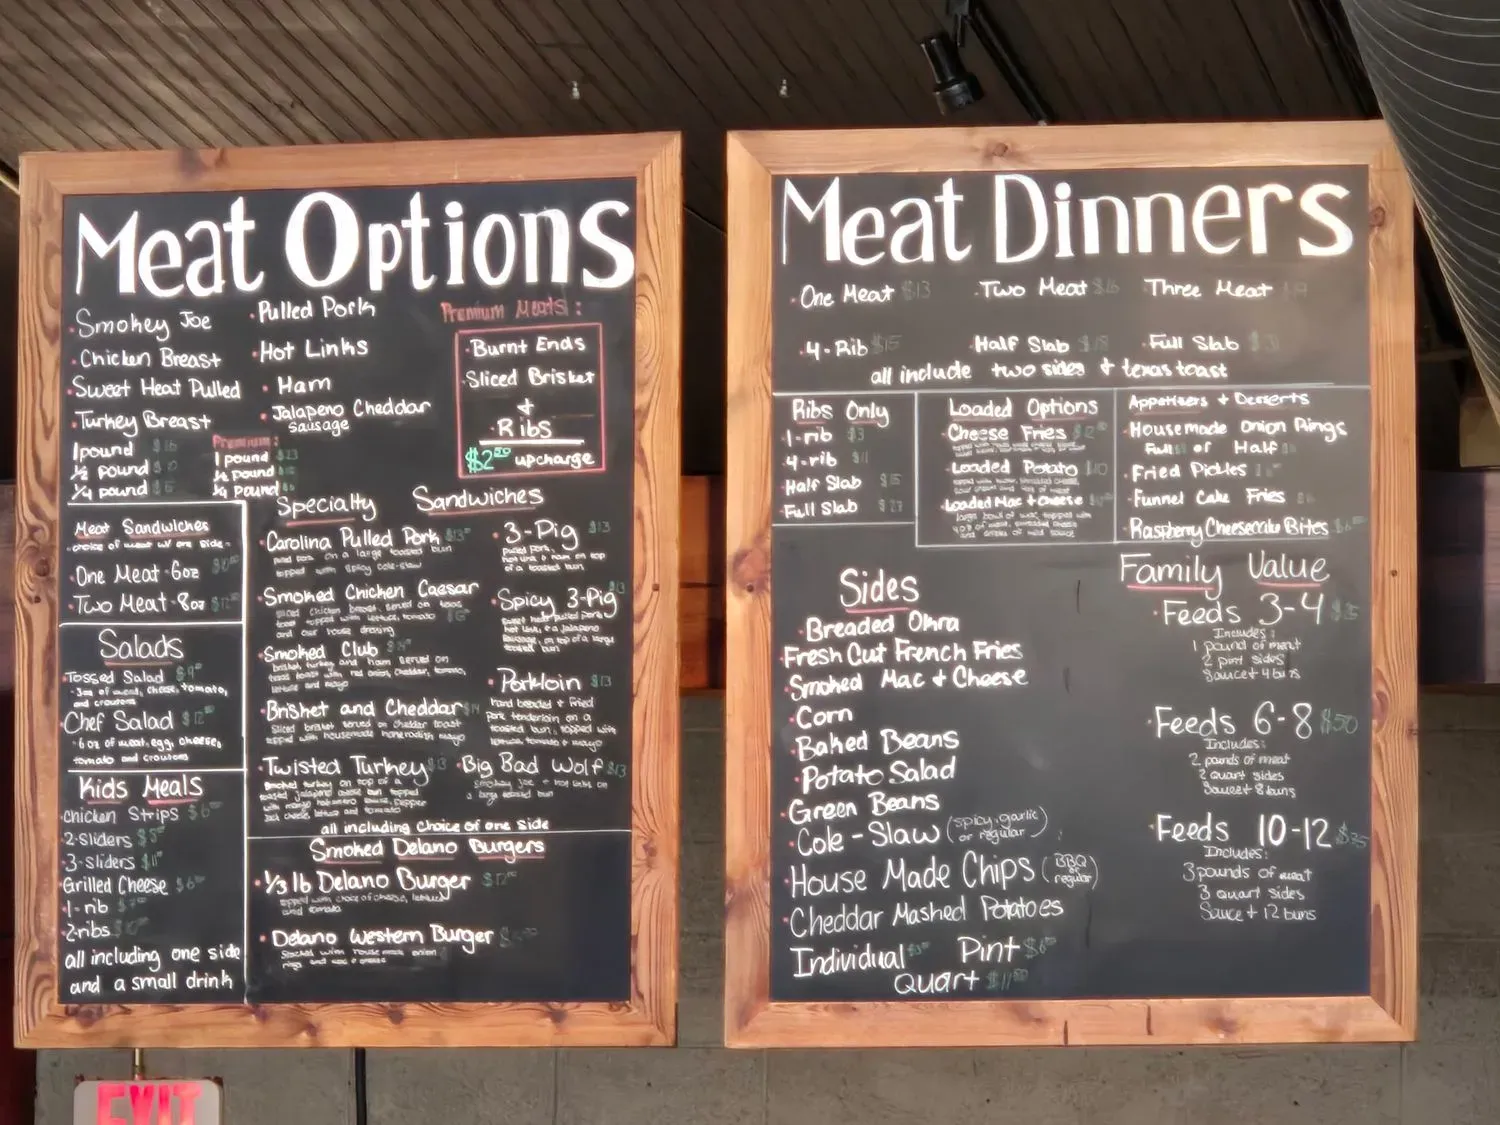 Meat Options
Smokey Joe
Chicken Breast
Sweet Heat Pulled
Turkey Breast
Pulled Pork
Hot Links
Ham
Jalapeno Cheddar
Sausage
Premium Meats:
Burnt Ends
Sliced Brisket
+
Ribs
$2.00 upcharge
1 pound
1/2 pound
1/4 pound
Premium:
1 pound $23
1/2 pound
1/4 pound
Meat Sandwiches
choice of meat w/ one side
One Meat-6oz
Two Meat-8oz
Salads
Tossed Salad
3oz of meat, cheese, tomato,
and croutons
Chef Salad
6oz of meat, egg, cheese,
tomato and croutons
Kids Meals
Chicken Strips
2-sliders
3-sliders
Grilled Cheese
1-rib
2-ribs
all including one side
and a small drink
Specialty Sandwiches
Carolina Pulled Pork
pulled pork on a large toasted bun
topped with spicy cole-slaw
Smoked Chicken Caesar
sliced chicken breast served on texas
toast topped with lettuce, tomato
and our house dressing
Smoked Club
brisket, turkey and ham served on
texas toast with red onions, cheddar, tomato,
lettuce and mayo
Brisket and Cheddar
Sliced brisket served on cheddar toast
topped with housemade horseradish mayo
Twisted Turkey $13
Smoked turkey on top of a
toasted jalapeno cheese bun topped
with mango habanero sauce, pepper
jack cheese, lettuce and tomato
3-Pig $13
pulled pork,
hot link & ham on top
of a toasted bun
Spicy 3-Pig $13
Sweet heat pulled pork,
hot link, & a jalapeno
sausage, on top of a large
toasted bun
Porkloin $13
hand breaded & fried
pork tenderloin on a
toasted bun, topped with
lettuce, tomato & mayo
Big Bad Wolf $13
Smokey joe & hot links on
a large toasted bun
all including choice of one side
Smoked Delano Burgers
1/3 lb Delano Burger
topped with choice of cheese, lettuce
and tomato
Delano Western Burger
Stacked with house made onion
rings and mac & cheese
Meat Dinners
One Meat $13
Two Meat $16
Three Meat
4-Rib $15
Half Slab
Full Slab
all include two sides & texas toast
Ribs Only
1-rib $3
4-rib $11
Half Slab $15
Full Slab $27
Loaded Options
Cheese Fries
Loaded Potato $10
Loaded Mac & Cheese
large bowl of mac, topped with
4oz of meat, shredded cheese
and drizzle of mild sauce
Appetisers + Desserts
Housemade Onion Rings
Full or Half
Fried Pickles
Funnel Cake Fries
Raspberry Cheesecake Bites
Sides
Breaded Okra
Fresh Cut French Fries
Smoked Mac & Cheese
Corn
Baked Beans
Potato Salad
Green Beans
Cole-Slaw (spicy, garlic
or regular)
House Made Chips (BBQ
or
regular)
Cheddar Mashed Potatoes
Individual
Pint
Quart
Family Value
Feeds 3-4
Includes:
1 pound of meat
2 pint sides
Sauce + 4 buns
Feeds 6-8 $50
Includes:
2 pounds of meat
2 quart sides
Sauce + 8 buns
Feeds 10-12
Includes:
3 pounds of meat
3 quart sides
Sauce + 12 buns
EXIT